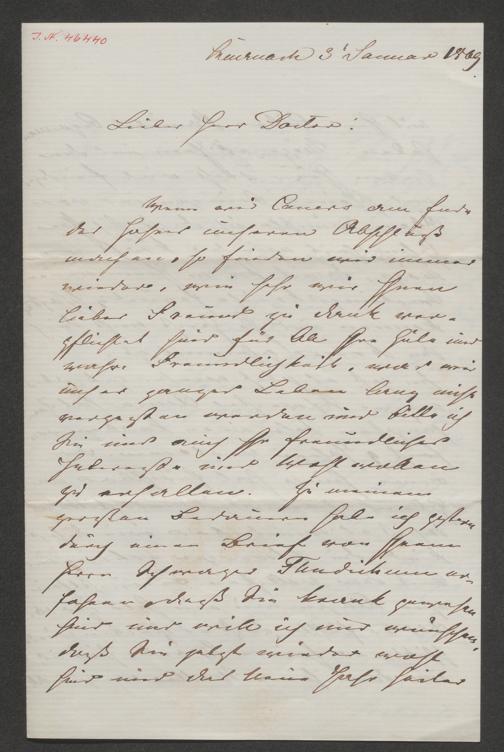 I. N. 46440
Kreuznach 3t Januar 1869
Lieber Herr Doctor!
Wenn wir Cauers am Ende
des Jahres unseren Abschluß
machen, so finden wir immer
wieder, wie sehr wir Ihnen
lieber Freund zu dank ver-
pflichtet sind für all Ihre Güte und
wahre Freundlichkeit, was wir
unser ganzes Leben lang nicht
vergessen werden und bitte ich
Sie uns auch Ihr freundliches
Interesse und Wohlwollen
zu erhalten. Zu meinem
grosten Bedauern habe ich gestern
durch einen Brief von Ihrem
Herrn Schwager Flindickum er-
fahren, daß Sie krank gewesen
sind und will ich nur wünschen,
daß Sie jetzt wieder wohl
sind und das neue Jahr heiter